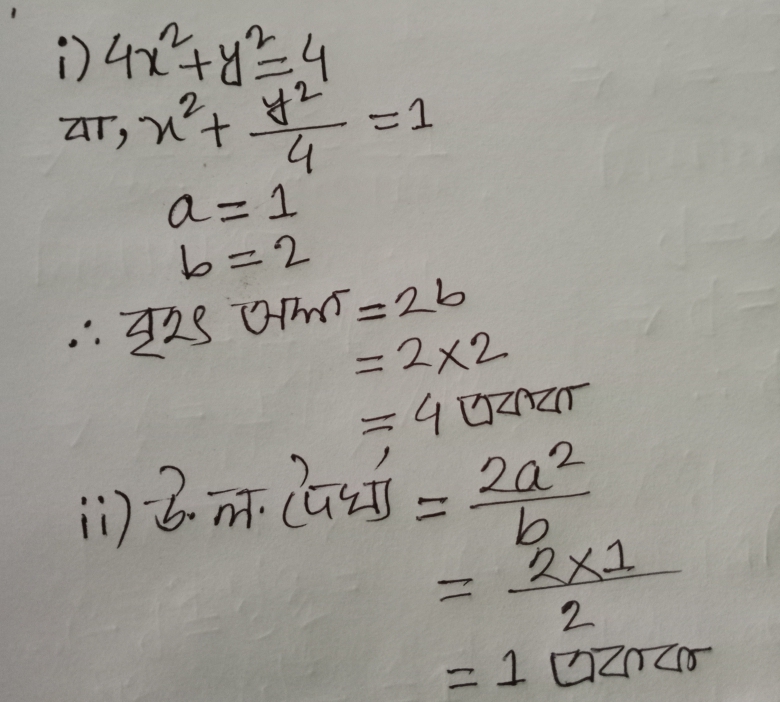 i) 4x² + y² = 4
বা, x² + y²/4 = 1
a = 1
b = 2
∴ বৃহৎ অক্ষ = 2b
= 2×2
= 4 একক
ii) উ. ল. দৈর্ঘ্য = 2a²/b
= 2×1/2
= 1 একক